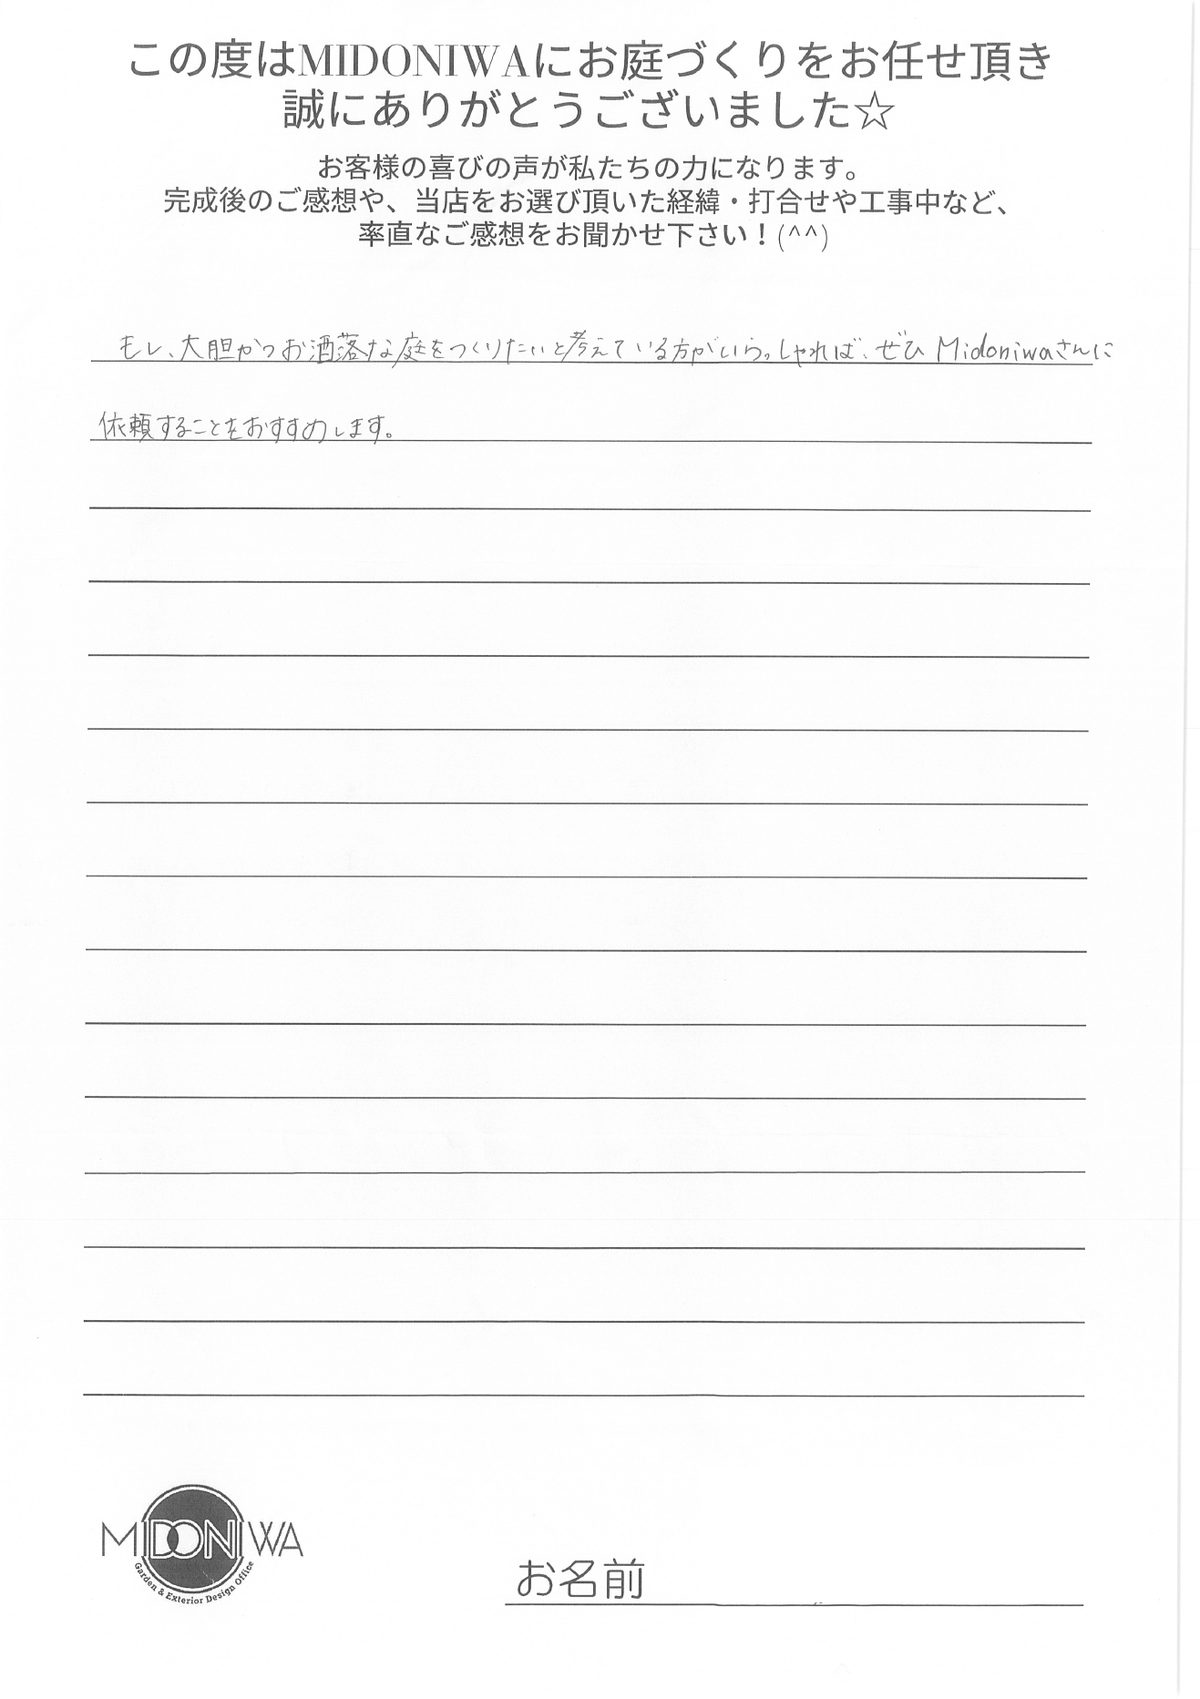 この度はMIDONIWAにお庭づくりをお任せ頂き
誠にありがとうございました☆
お客様の喜びの声が私たちの力になります。
完成後のご感想や、当店をお選び頂いた経緯・打合せや工事中など、
率直なご感想をお聞かせ下さい！(^^)
もし、大胆かつお洒落な庭をつくりたいと考えている方がいらっしゃれば、ぜひMidoniwaさんに
依頼することをおすすめします。
MIDONIWA
Garden & Exterior Design Office
お名前